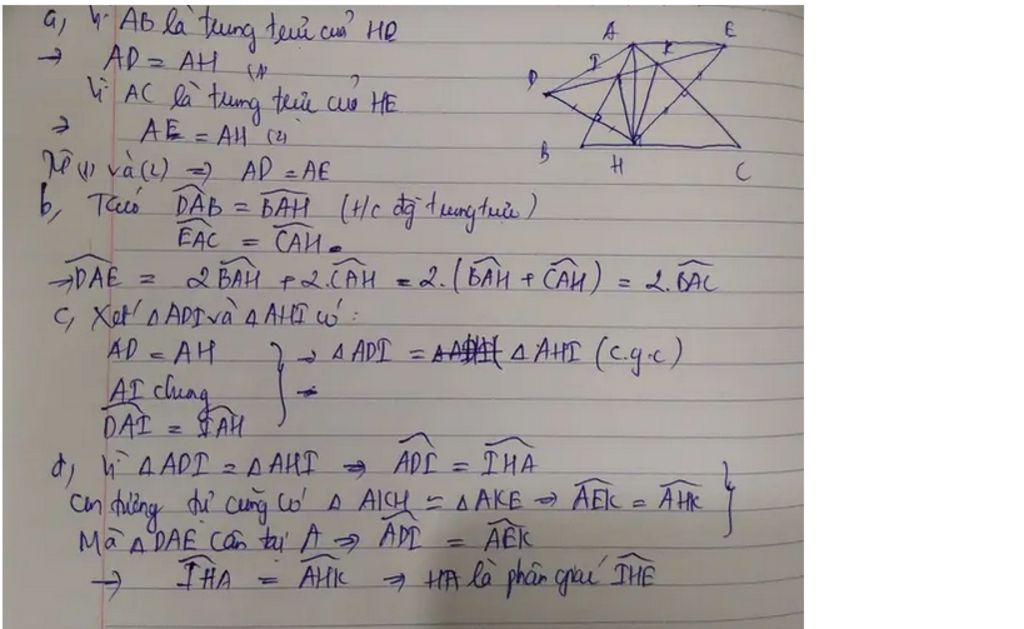 a, Vì AB là trung trực của HD
→ AD = AH (1)
Vì AC là trung trực của HE
⇒ AE = AH (2)
Từ (1) và (2) ⇒ AD = AE
b, Ta có \widehat{DAB} = \widehat{BAH} (t/c đg trung trực)
\widehat{EAC} = \widehat{CAH}.
→ \widehat{DAE} = 2\widehat{BAH} + 2.\widehat{CAH} = 2.(\widehat{BAH} + \widehat{CAH}) = 2.\widehat{BAC}
c, Xét △ADI và △AHI có :
AD = AH } → △ADI = △AHI (c.g.c)
AI chung
\widehat{DAI} = \widehat{IAH}
d, Vì △ADI = △AHI ⇒ \widehat{ADI} = \widehat{IHA}
Cm tương tự cũng có △AKH = △AKE ⇒ \widehat{AEK} = \widehat{AHK} }
Mà △DAE cân tại A ⇒ \widehat{ADI} = \widehat{AEK}
→ \widehat{IHA} = \widehat{AHK} ⇒ HA là phân giác \widehat{IHE}
A E
I K
D
B H C